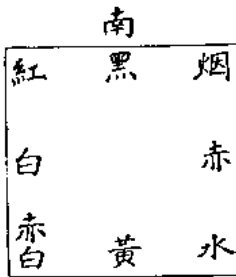 南
紅 黑 烟
白 赤
赤白 黃 水